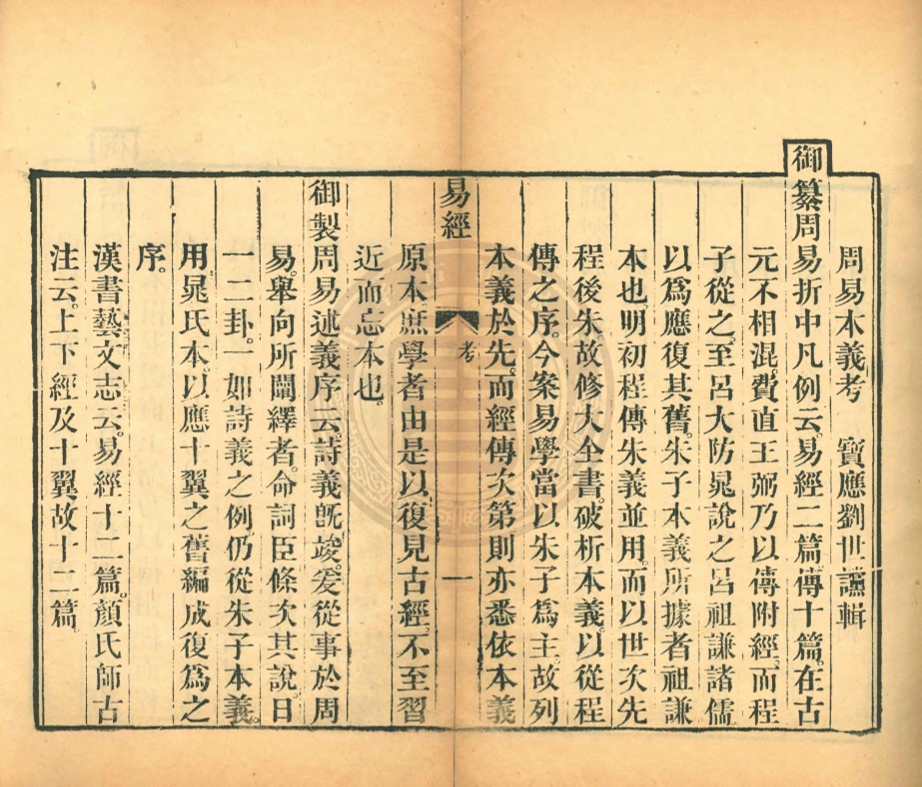 周易本義考　寶應劉世讜輯
御纂周易折中凡例云易經二篇傳十篇在古
元不相混費直王弼乃以傳附經而程
子從之至呂大防晁說之呂祖謙諸儒
以爲應復其舊朱子本義所據者祖謙
本也明初程傳朱義並用而以世次先
程後朱故修大全書破析本義以從程
傳之序今案易學當以朱子爲主故列
本義於先而經傳次第則亦悉依本義
易經　考　一
原本庶學者由是以復見古經不至習
近而忘本也
御製周易述義序云詩義旣竣爰從事於周
易舉向所闡繹者命詞臣條次其說日
一二卦一如詩義之例仍從朱子本義
用晁氏本以應十翼之舊編成復爲之
序
漢書藝文志云易經十二篇顏氏師古
注云上下經及十翼故十二篇